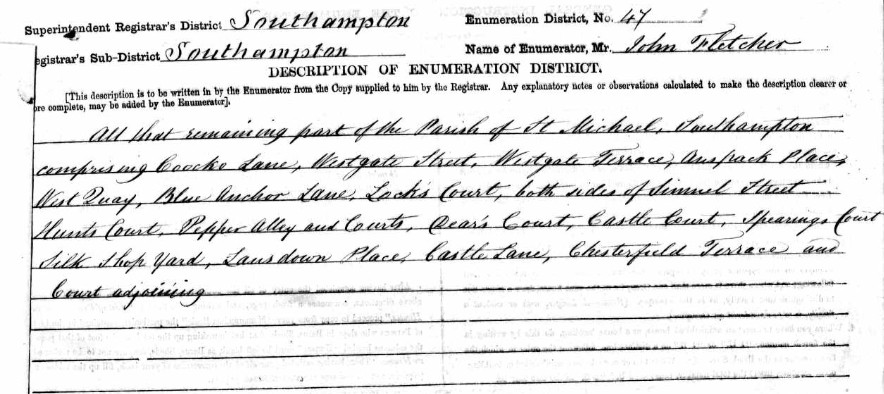 Superintendent Registrar's District Southampton Enumeration District, No. 47
egistrar's Sub-District Southampton Name of Enumerator, Mr. John Fletcher
DESCRIPTION OF ENUMERATION DISTRICT.
[This description is to be written in by the Enumerator from the Copy supplied to him by the Registrar. Any explanatory notes or observations calculated to make the description clearer or
ore complete, may be added by the Enumerator].
All that remaining part of the Parish of St Michael, Southampton
comprising Coocks Lane, Westgate Street, Westgate Terrace, Anspack Place,
West Quay, Blue Anchor Lane, Lock's Court, both sides of Simnel Street
Hunts Court, Pepper Alley and Courts, Dear's Court, Castle Court, Spearings Court
Silk Shop Yard, Lansdown Place, Castle Lane, Chesterfield Terrace and
Court adjoining